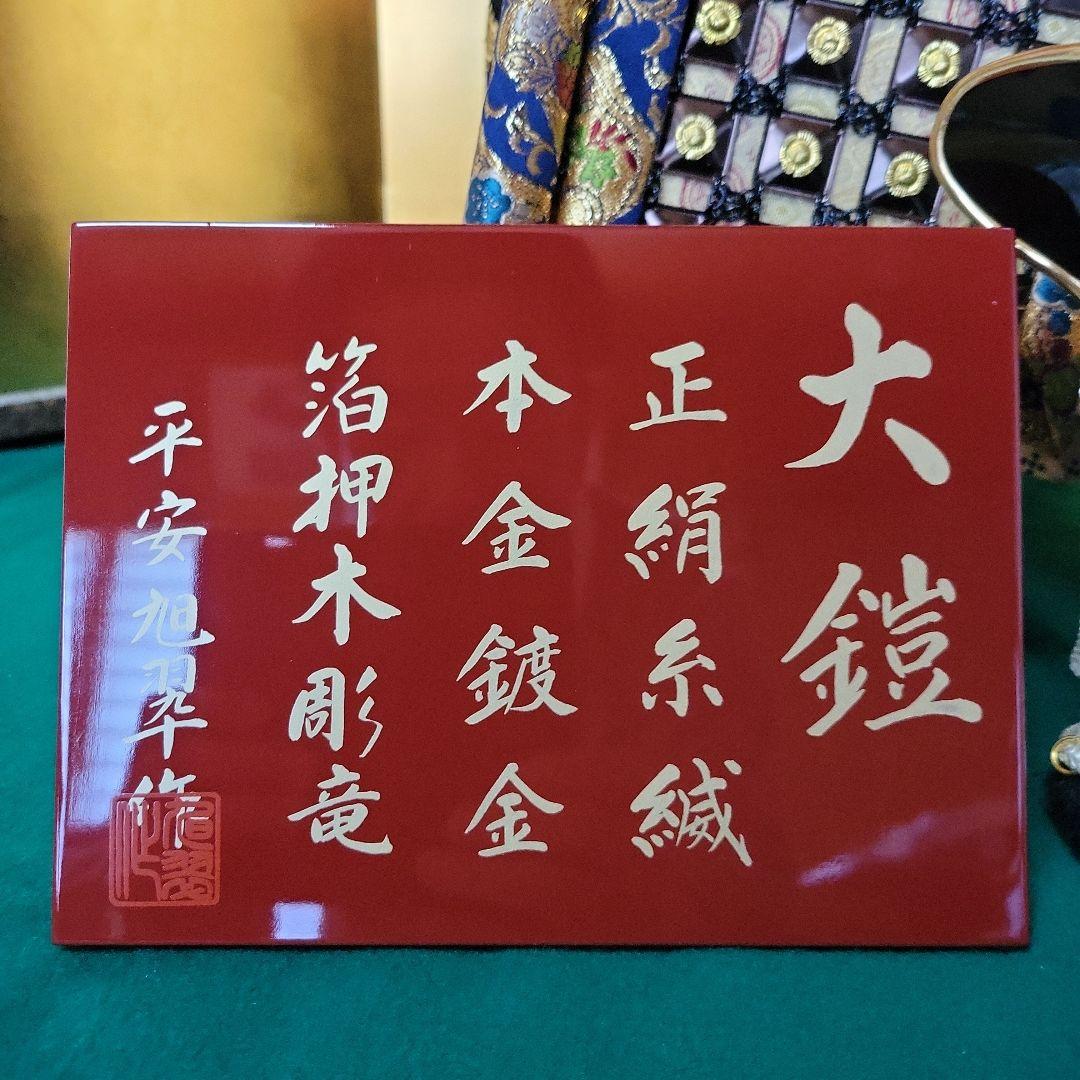 大鎧
正絹糸縅
本金鍍金
箔押木彫竜
平安旭翠作